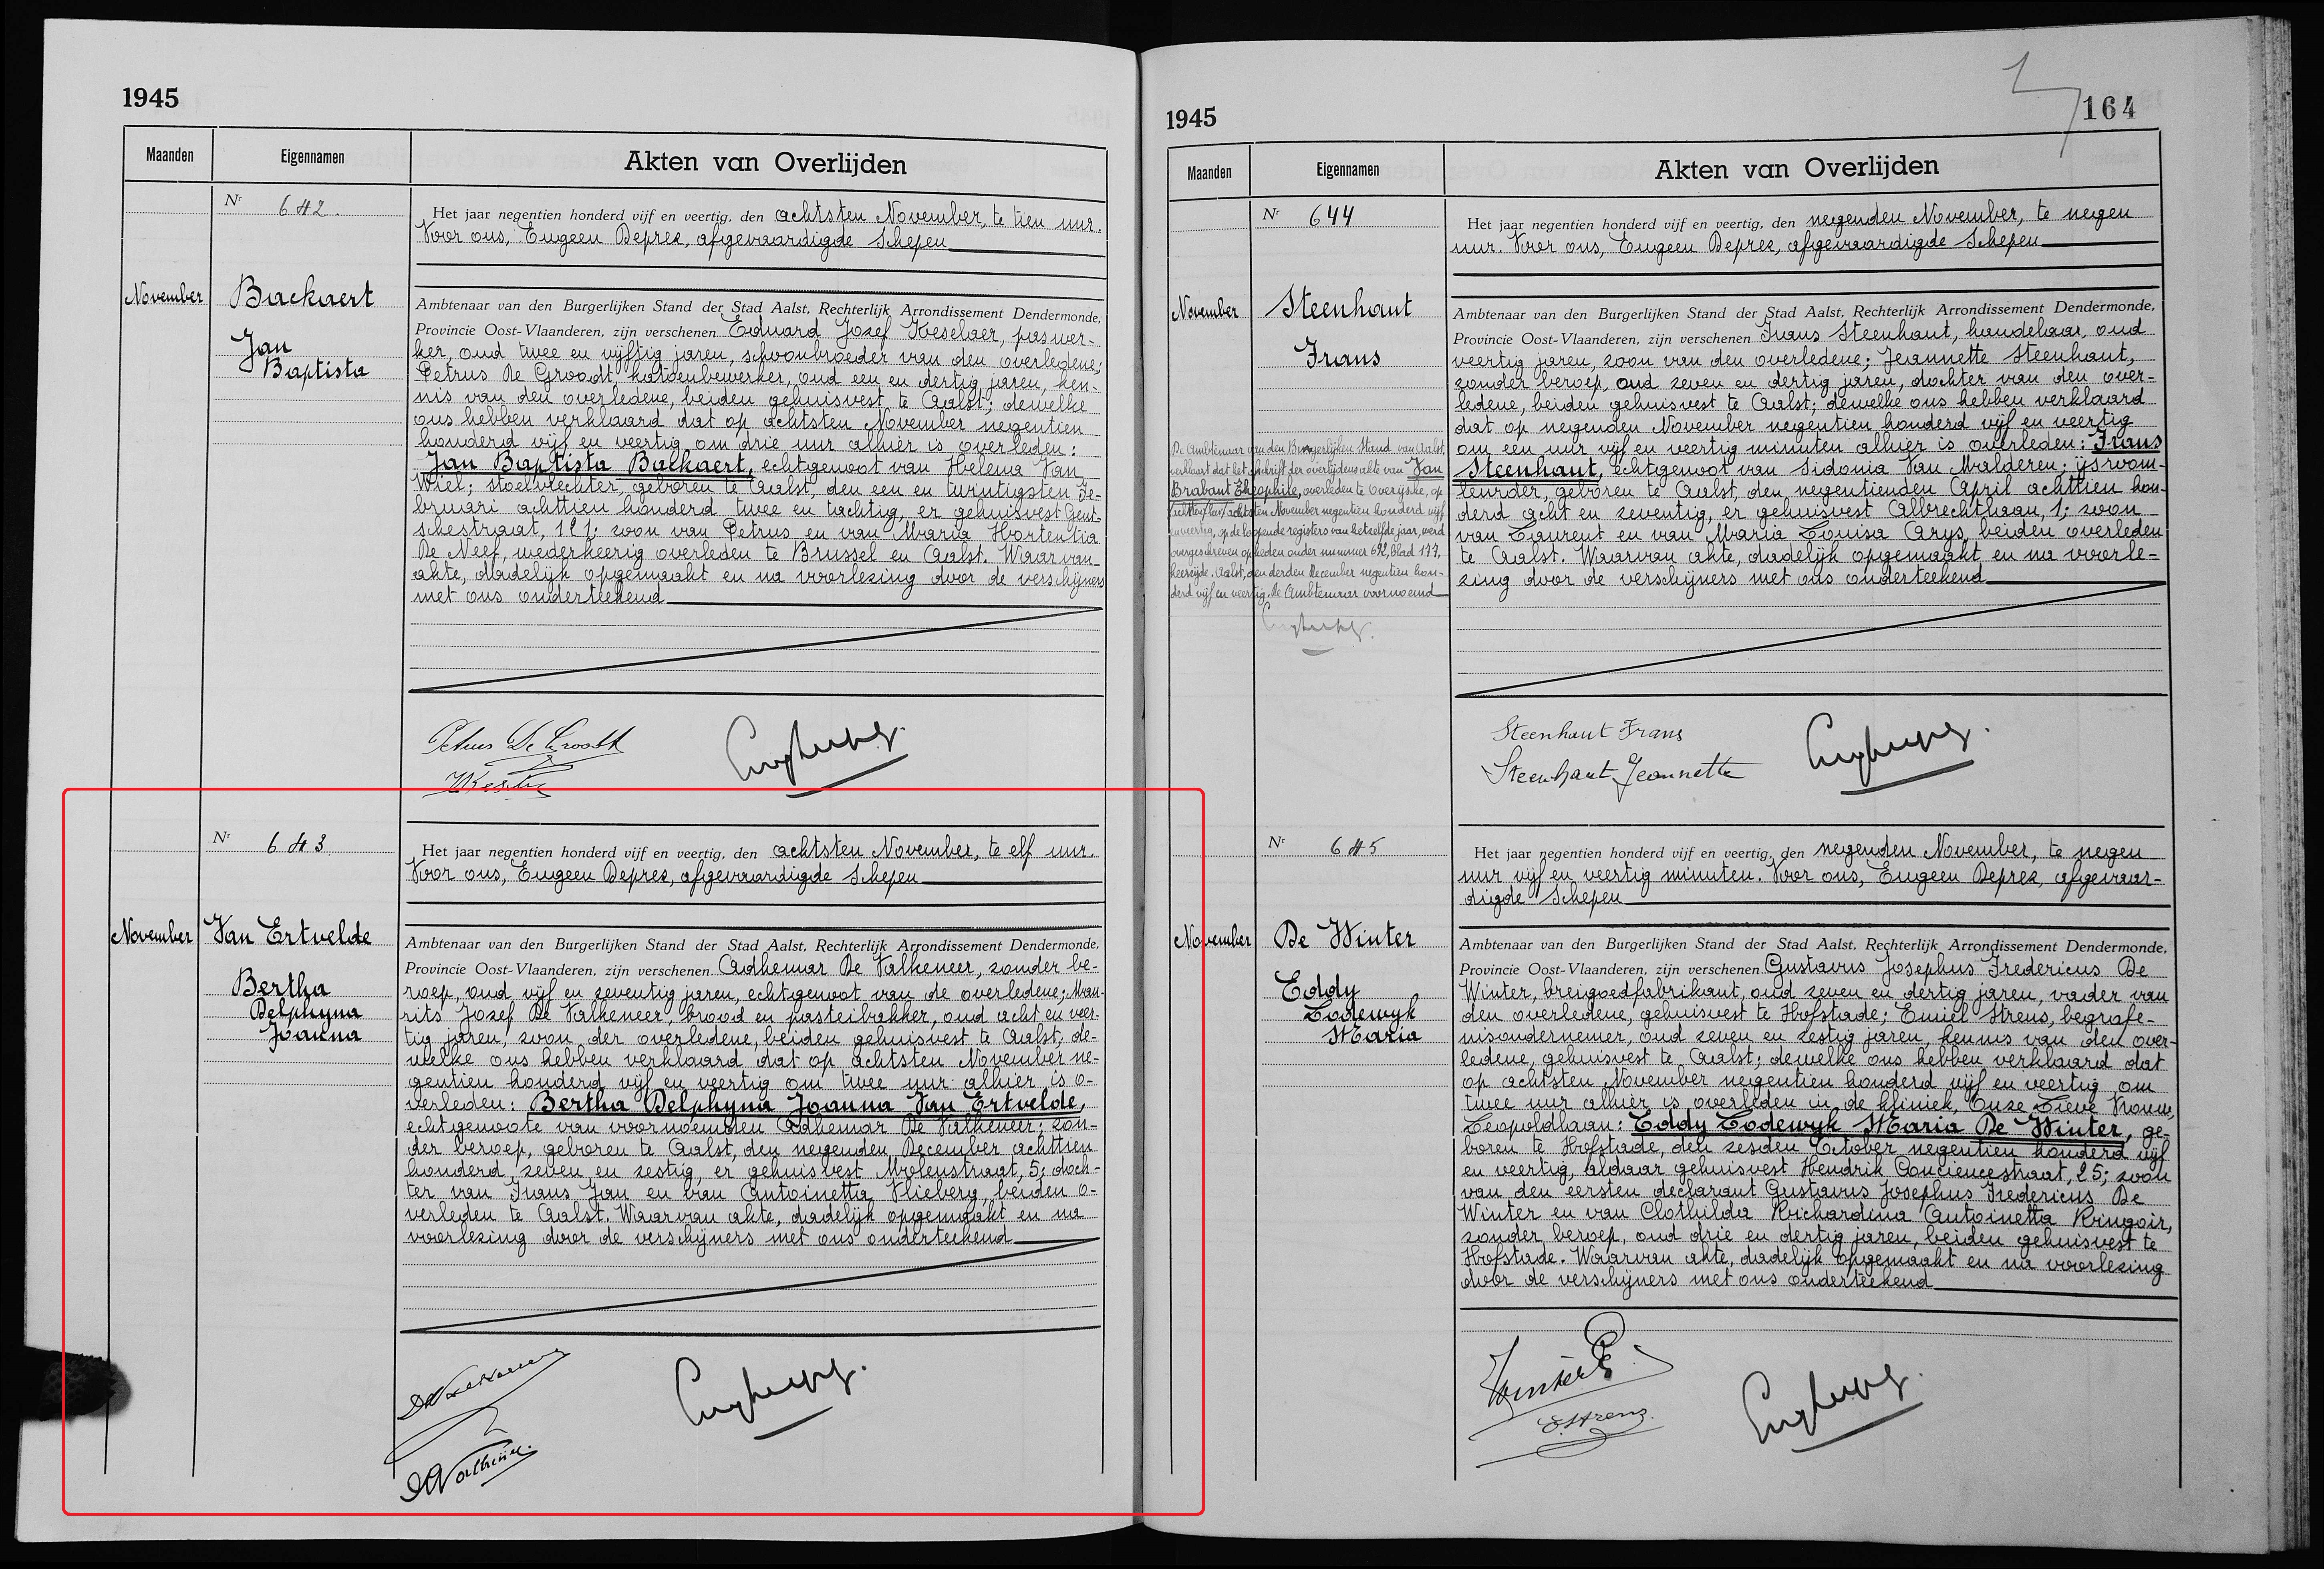 1945
Maanden
Eigennamen
Akten van Overlijden
Nr 642.
November
Backaert
Jan
Baptista
Het jaar negentien honderd vijf en veertig, den achtsten November, te tien uur.
Voor ons, Eugeen Deprez, afgevaardigde Schepen
Ambtenaar van den Burgerlijken Stand der Stad Aalst, Rechterlijk Arrondissement Dendermonde,
Provincie Oost-Vlaanderen, zijn verschenen Eduard Jozef Keselaer, paswer-
ker, oud twee en vijftig jaren, schoonbroeder van den overledene;
Petrus De Groodt, katoenbewerker, oud een en dertig jaren, ken-
nis van den overledene, beiden gehuisvest te Aalst; dewelke
ons hebben verklaard dat op achtsten November negentien
honderd vijf en veertig om drie uur alhier is overleden:
Jan Baptista Backaert, echtgenoot van Helena Van
Wiel; stoelvlechter, geboren te Aalst, den een en twintigsten Fe-
bruari achttien honderd twee en tachtig, er gehuisvest Gent-
schestraat, 121; zoon van Petrus en van Maria Hortentia
De Neef, wederkeerig overleden te Brussel en Aalst. Waarvan
akte, dadelijk opgemaakt en na voorlezing door de verschijners
met ons onderteekend
Petrus De Groodt
Nr 643
November
Van Ertvelde
Bertha
Delphyna
Joanna
Het jaar negentien honderd vijf en veertig, den achtsten November, te elf uur.
Voor ons, Eugeen Deprez, afgevaardigde Schepen
Ambtenaar van den Burgerlijken Stand der Stad Aalst, Rechterlijk Arrondissement Dendermonde,
Provincie Oost-Vlaanderen, zijn verschenen Adhemar De Valkeneer, zonder be-
roep, oud vijf en zeventig jaren, echtgenoot van de overledene; Mau-
rits Jozef De Valkeneer, brood en pasteibakker, oud acht en veer-
tig jaren, zoon der overledene, beiden gehuisvest te Aalst, de-
welke ons hebben verklaard dat op achtsten November ne-
gentien honderd vijf en veertig om twee uur alhier is o-
verleden: Bertha Delphyna Joanna Van Ertvelde,
echtgenoote van voornoemden Adhemar De Valkeneer; zon-
der beroep, geboren te Aalst, den negenden December achttien
honderd zeven en zestig, er gehuisvest Molenstraat, 5; doch-
ter van Frans Jan en van Antoinetta Vlieberg, beiden o-
verleden te Aalst. Waarvan akte, dadelijk opgemaakt en na
voorlezing door de verschijners met ons onderteekend
1945
164
Maanden
Eigennamen
Akten van Overlijden
Nr 644
November
Steenhaut
Frans
Het jaar negentien honderd vijf en veertig, den negenden November, te negen
uur. Voor ons, Eugeen Deprez, afgevaardigde Schepen
Ambtenaar van den Burgerlijken Stand der Stad Aalst, Rechterlijk Arrondissement Dendermonde,
Provincie Oost-Vlaanderen, zijn verschenen Frans Steenhaut, handelaar, oud
veertig jaren, zoon van den overledene; Jeannette Steenhaut,
zonder beroep, oud zeven en dertig jaren, dochter van den over-
ledene, beiden gehuisvest te Aalst; dewelke ons hebben verklaard
dat op negenden November negentien honderd vijf en veertig
om een uur vijf en veertig minuten alhier is overleden: Frans
Steenhaut, echtgenoot van Sidonia Van Malderen; ijsroom-
leurder, geboren te Aalst, den negentienden April achttien hon-
derd acht en zeventig, er gehuisvest Albrechtlaan, 1; zoon
van Laurent en van Maria Louisa Arys, beiden overleden
te Aalst. Waarvan akte, dadelijk opgemaakt en na voorle-
zing door de verschijners met ons onderteekend
De Ambtenaar van den Burgerlijken Stand van Aalst,
verklaart dat het afschrift der overlijdensakte van Jan
Brabant Theophile, overleden te Overijsche, op
achtsten November negentien honderd vijf
en veertig, op de loopende registers van hetzelfde jaar, werd
overgeschreven op heden onder nummer 692, blad 177,
keerzijde. Aalst, den derden December negentien hon-
derd vijf en veertig. De Ambtenaar voornoemd
Steenhaut Frans
Steenhaut Jeannette
Nr 645
November
De Winter
Eddy
Lodewyk
Maria
Het jaar negentien honderd vijf en veertig, den negenden November, te negen
uur vijf en veertig minuten. Voor ons, Eugeen Deprez, afgevaar-
digde Schepen
Ambtenaar van den Burgerlijken Stand der Stad Aalst, Rechterlijk Arrondissement Dendermonde,
Provincie Oost-Vlaanderen, zijn verschenen Gustavus Josephus Fredericus De
Winter, breigoedfabrikant, oud zeven en dertig jaren, vader van
den overledene, gehuisvest te Hofstade; Emiel Strens, begrafe-
nisondernemer, oud zeven en zestig jaren, kennis van den over-
ledene, gehuisvest te Aalst; dewelke ons hebben verklaard dat
op achtsten November negentien honderd vijf en veertig om
twee uur alhier is overleden in de kliniek, Onze Lieve Vrouw,
Leopoldlaan: Eddy Lodewyk Maria De Winter, ge-
boren te Hofstade, den zesden October negentien honderd vijf
en veertig, aldaar gehuisvest Hendrik Consciencestraat, 25; zoon
van den eersten declarant Gustavus Josephus Fredericus De
Winter en van Clothilda Richardina Antoinetta Ringoir,
zonder beroep, oud drie en dertig jaren, beiden gehuisvest te
Hofstade. Waarvan akte, dadelijk opgemaakt en na voorlezing
door de verschijners met ons onderteekend
E. Strens.